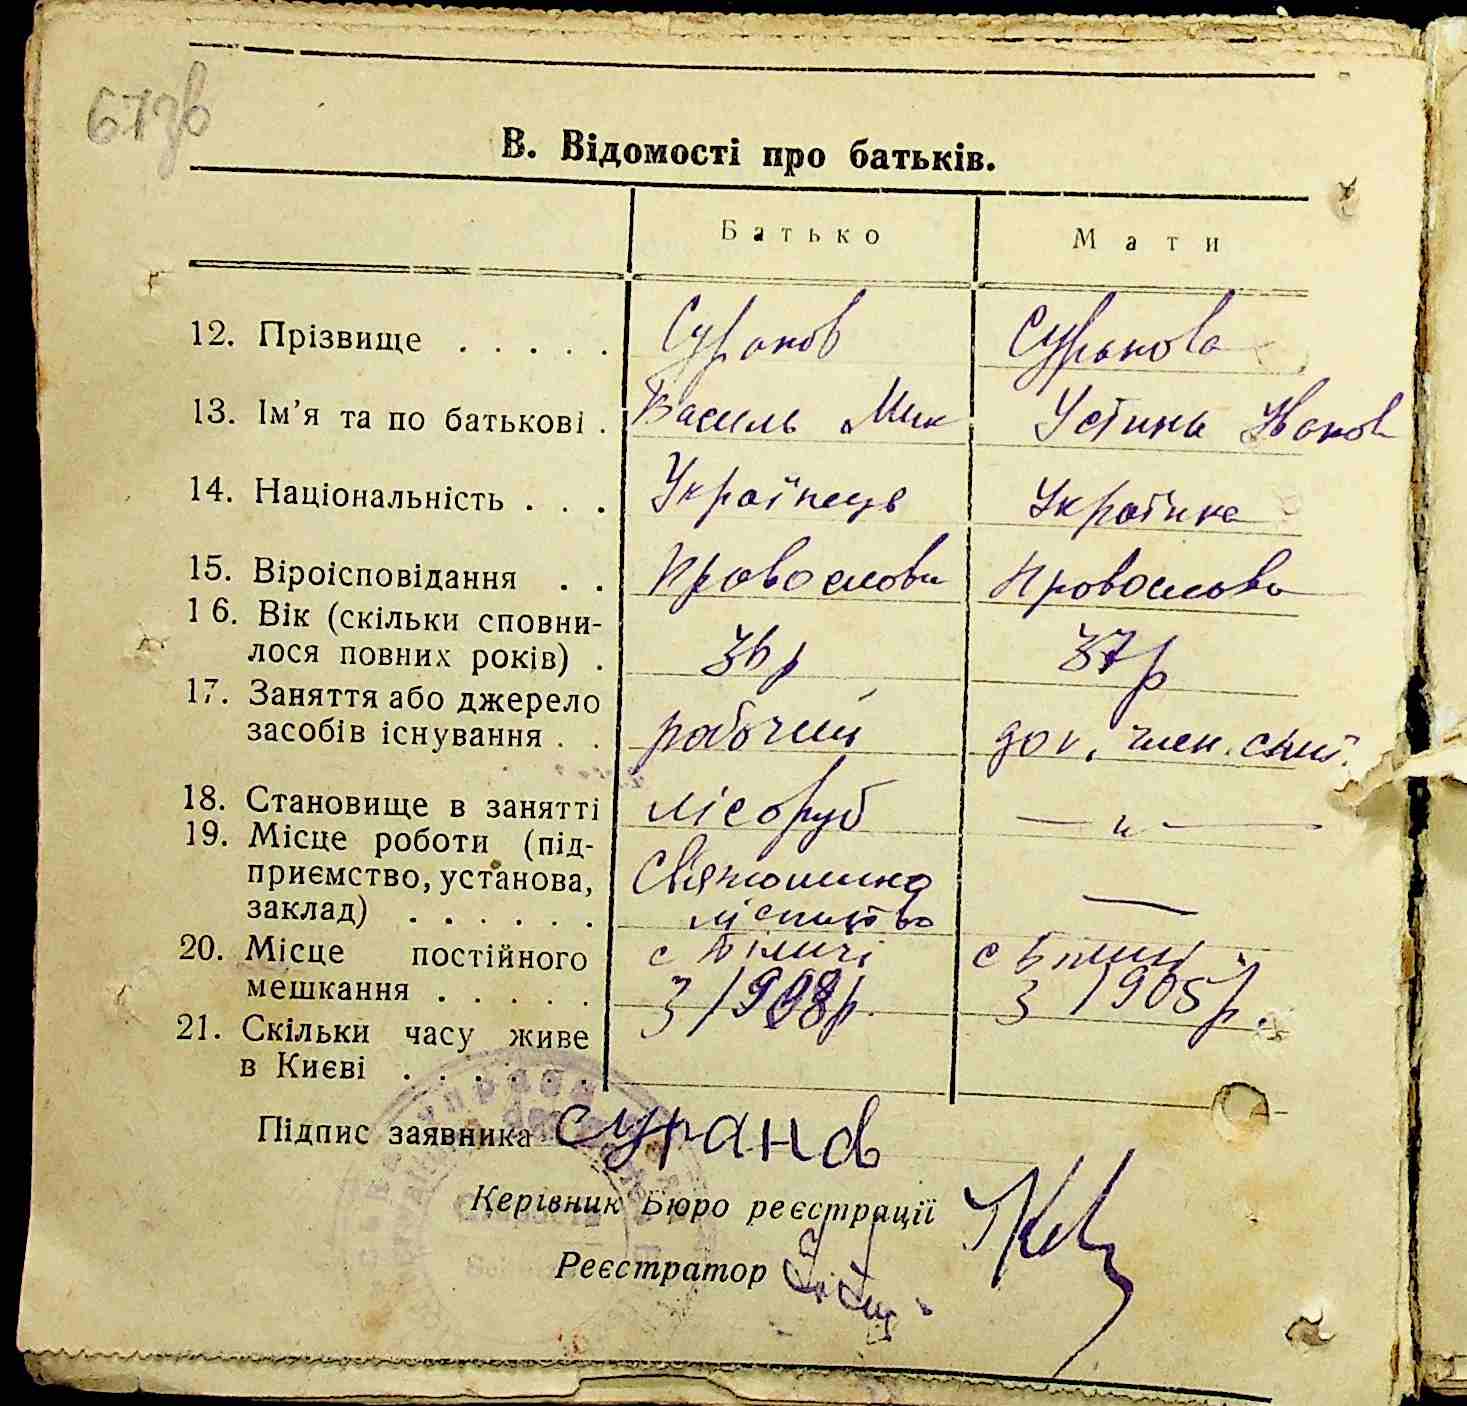 67 зв
В. Відомості про батьків.
Батько Мати
12. Прізвище . . . . . Суранов Суранова
13. Ім'я та по батькові . Василь Мик Устина Иванов
14. Національність . . . Українець Українка
15. Віроісповідання . . Православн Православн
16. Вік (скільки сповни-
лося повних років) . 36 р 37 р
17. Заняття або джерело
засобів існування . . рабочий дом. член. сим'ї.
18. Становище в занятті лісоруб — „ —
19. Місце роботи (під-
приємство, установа, Святошинно —
заклад) . . . . . . лісництво
20. Місце постійного с Біличі с Біличі
мешкання . . . . . З 1908 р. З 1905 р.
21. Скільки часу живе
в Києві . . . . . .
Підпис заявника Суранов
Керівник Бюро реєстрації
Реєстратор